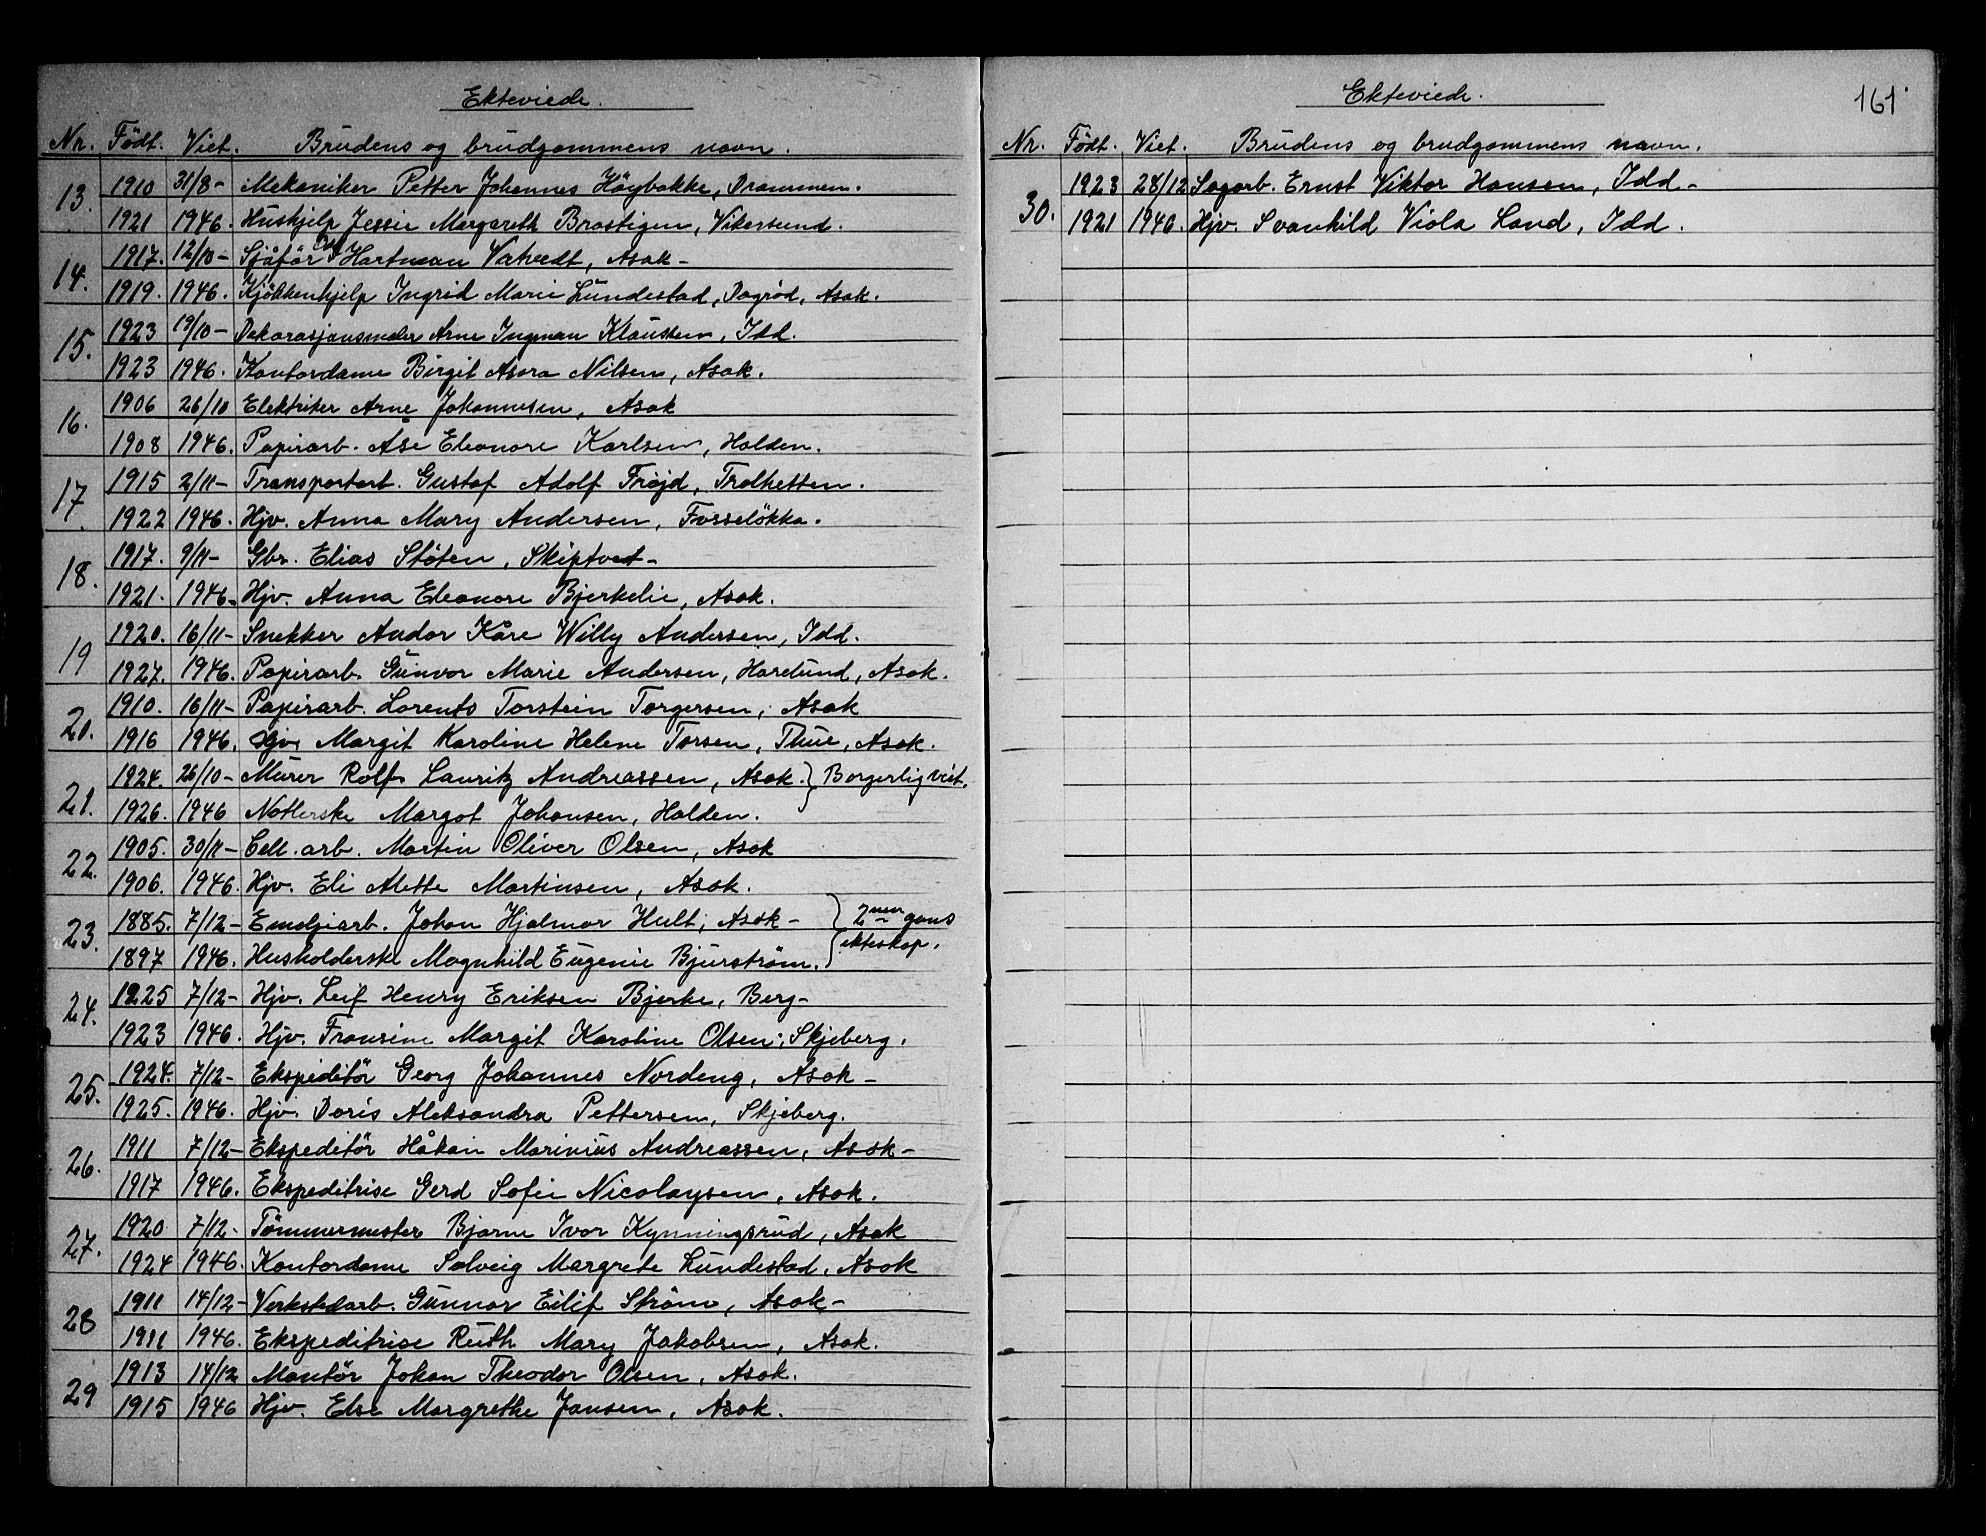 Ekteviede.
Nr. Født. Viet. Brudens og brudgommens navn.
13. 1910 31/8- Mekaniker Petter Johannes Höybakke, Drammen.
1921 1946. Hushjelp Jessie Margareth Brastigen, Vikersund.
14. 1917. 12/10- Sjåför Hartman Vatvedt, Asak-
1919. 1946. Kjökkenhjelp Ingrid Marie Lundestad, Dagröd, Asak.
15. 1923 19/10- Dekorasjonsmaler Arne Ingman Klaussen, Idd.
1923 1946. Kontordame Birgit Asora Nilsen, Asak.
16. 1906 26/10 Elektriker Arne Johannesen, Asak
1908 1946. Papirarb. Åse Eleonore Karlsen, Halden.
17. 1915 2/11- Transportarb. Gustaf Adolf Fröjd, Trolhetten.
1922 1946. Hjv. Anna Mary Andersen, Fosseløkka.
18. 1917. 9/11- Gbr. Elias Støten, Skiptvet-
1921. 1946. Hjv. Anna Eleonore Bjerkelie, Asak.
19 1920. 16/11- Snekker Andor Kåre Willy Andersen, Idd.
1927. 1946. Papirarb. Gunvor Marie Andersen, Harelund, Asak.
20. 1910. 16/11- Papirarb. Lorents Torstein Torgersen, Asak
1916 1946. Hjv. Margit Karoline Helene Torsen, Thue, Asak.
21. 1924. 26/10- Murer Rolf Lauritz Andreassen, Asak. } Borgerlig viet.
1926. 1946 Notlerske Margot Johansen, Halden.
22. 1905. 30/11- Cell. arb. Martin Oliver Olsen, Asak
1906. 1946. Hjv. Eli Alette Martinsen, Asak.
23. 1885. 7/12- Emaljearb. Johan Hjalmar Hult, Asak- } 2nen gans
1897 1946. Husholderske Magnhild Eugenie Bjurström. } ekteskap.
24. 1925 7/12- Hjv. Leif Henry Eriksen Bjerke, Berg-
1923 1946. Hjv. Fransine Margit Karoline Olsen, Skjeberg.
25. 1924. 7/12- Ekspeditör Georg Johannes Nordeng, Asak-
1925. 1946. Hjv. Doris Aleksandra Pettersen, Skjeberg.
26. 1911 7/12- Ekspeditör Håkan Marinius Andreassen, Asak-
1917 1946. Ekspeditrise Gerd Sofie Nicolaysen, Asak.
27. 1920 7/12- Tömmermester Bjarne Ivar Kynningsrud, Asak
1924 1946. Kontordame Solveig Margrete Lundestad, Asak
28 1911 14/12- Verkstedarb. Gunnar Eilif Ström, Asak-
1911 1946. Ekspeditrise Ruth Mary Jakobsen, Asak.
29 1913 14/12 Montör Johan Theodor Olsen, Asak.
1915 1946 Hjv. Else Margrethe Jansen, Asak.
Ekteviede.
161
Nr. Födt. Viet. Brudens og brudgommens navn.
30. 1923 28/12 Sagarb. Ernst Viktor Hansen, Idd-
1921 1946. Hjv. Svanhild Viola Lund, Idd.